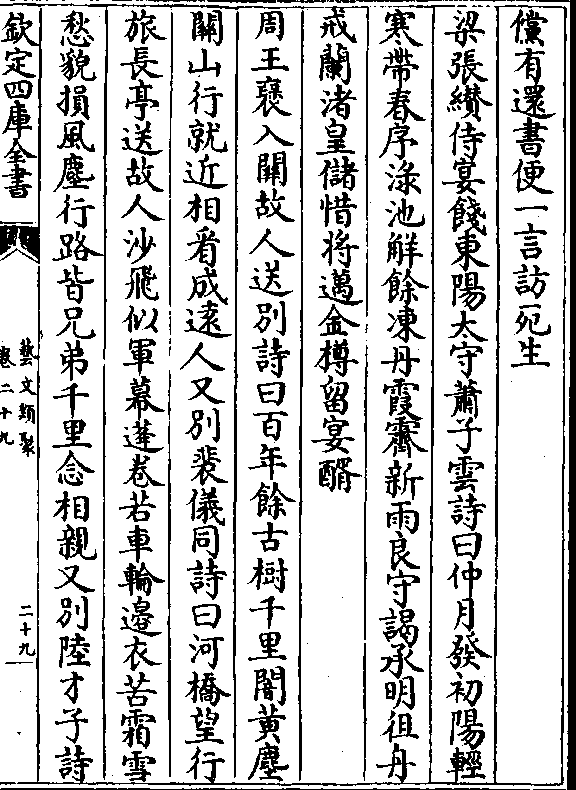 儻有還書便一言訪死生
梁張纉侍宴餞東陽太守蕭子雲詩曰仲月發初陽輕
寒帶春序渌池解餘凍丹霞霽新雨良守謁承明徂舟
戒蘭渚皇儲惜將邁金樽留宴醑
周王襃入關故人送別詩曰百年餘古樹千里闇黃塵
關山行就近相看成逺人又別裴儀同詩曰河橋望行
旅長亭送故人沙飛似軍幕蓬卷若車輪邊衣苦霜雪
愁貌損風塵行路皆兄弟千里念相親又別陸才子詩
欽定四庫全書
藝文類聚
卷二十九
二十九